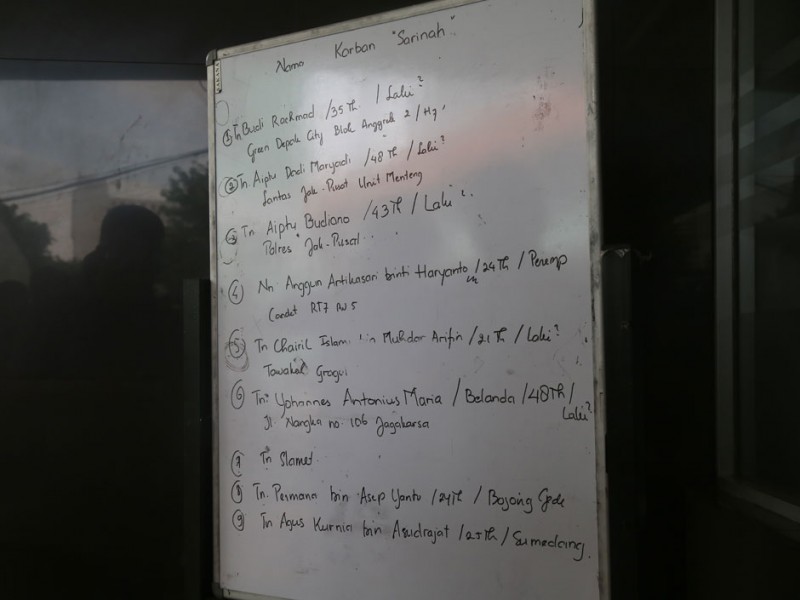 Nama Korban "Sarinah"
① Tn Budi Rachmad / 35 Th / Laki²
Green Depok City Blok Anggrek 2 / H7
② Tn. Aiptu Dodi Maryadi / 48 Th / Laki²
Lantas Jak-Pusat Unit Menteng
③ Tn Aiptu Budiono / 43 Th / Laki²
Polres Jak-Pusat
④ Nn. Anggun Artikasari binti Haryanto / 24 Th / Peremp
Condet RT7 RW 5
⑤ Tn Chairil Islam bin Muhdar Arifin / 21 Th / Laki²
Tawakal Grogol
⑥ Tn. Yohannes Antonius Maria / Belanda / 48 Th / Laki²
Jl. Nangka no. 106 Jagakarsa
⑦ Tn Slamet
⑧ Tn. Permana bin Asep Yanto / 24 Th / Bojong Gede
⑨ Tn Agus Kurnia bin Asudrajat / 25 Th / Sumedang